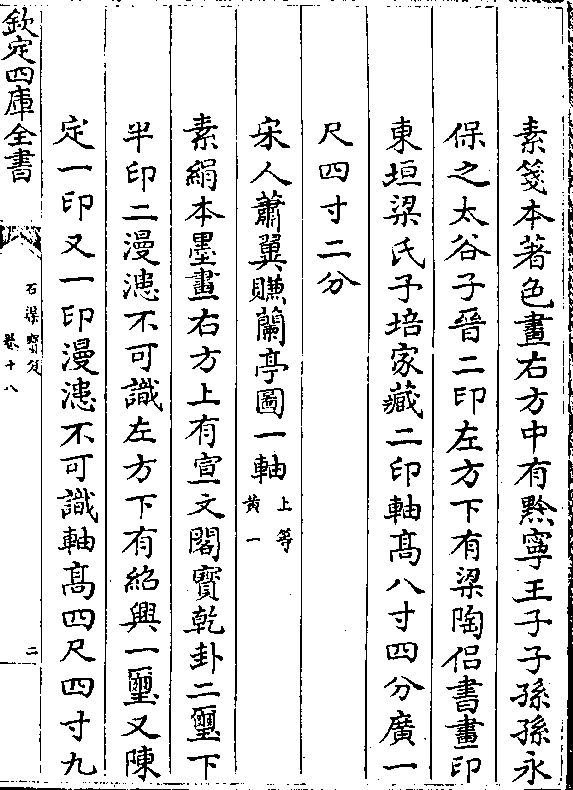 素箋本著色畫右方中有黔寧王子子孫孫永
保之太谷子晉二印左方下有梁陶侣書畫印
東垣梁氏子培家藏二印軸髙八寸四分廣一
尺四寸二分
宋人蕭翼賺蘭亭圖一軸上等
黄一
素絹本墨畫右方上有宣文閣寳乾卦二璽下
半印二漫漶不可識左方下有紹興一璽又陳
定一印又一印漫漶不可識軸髙四尺四寸九
欽定四庫全書
石渠寳笈
卷十八
二